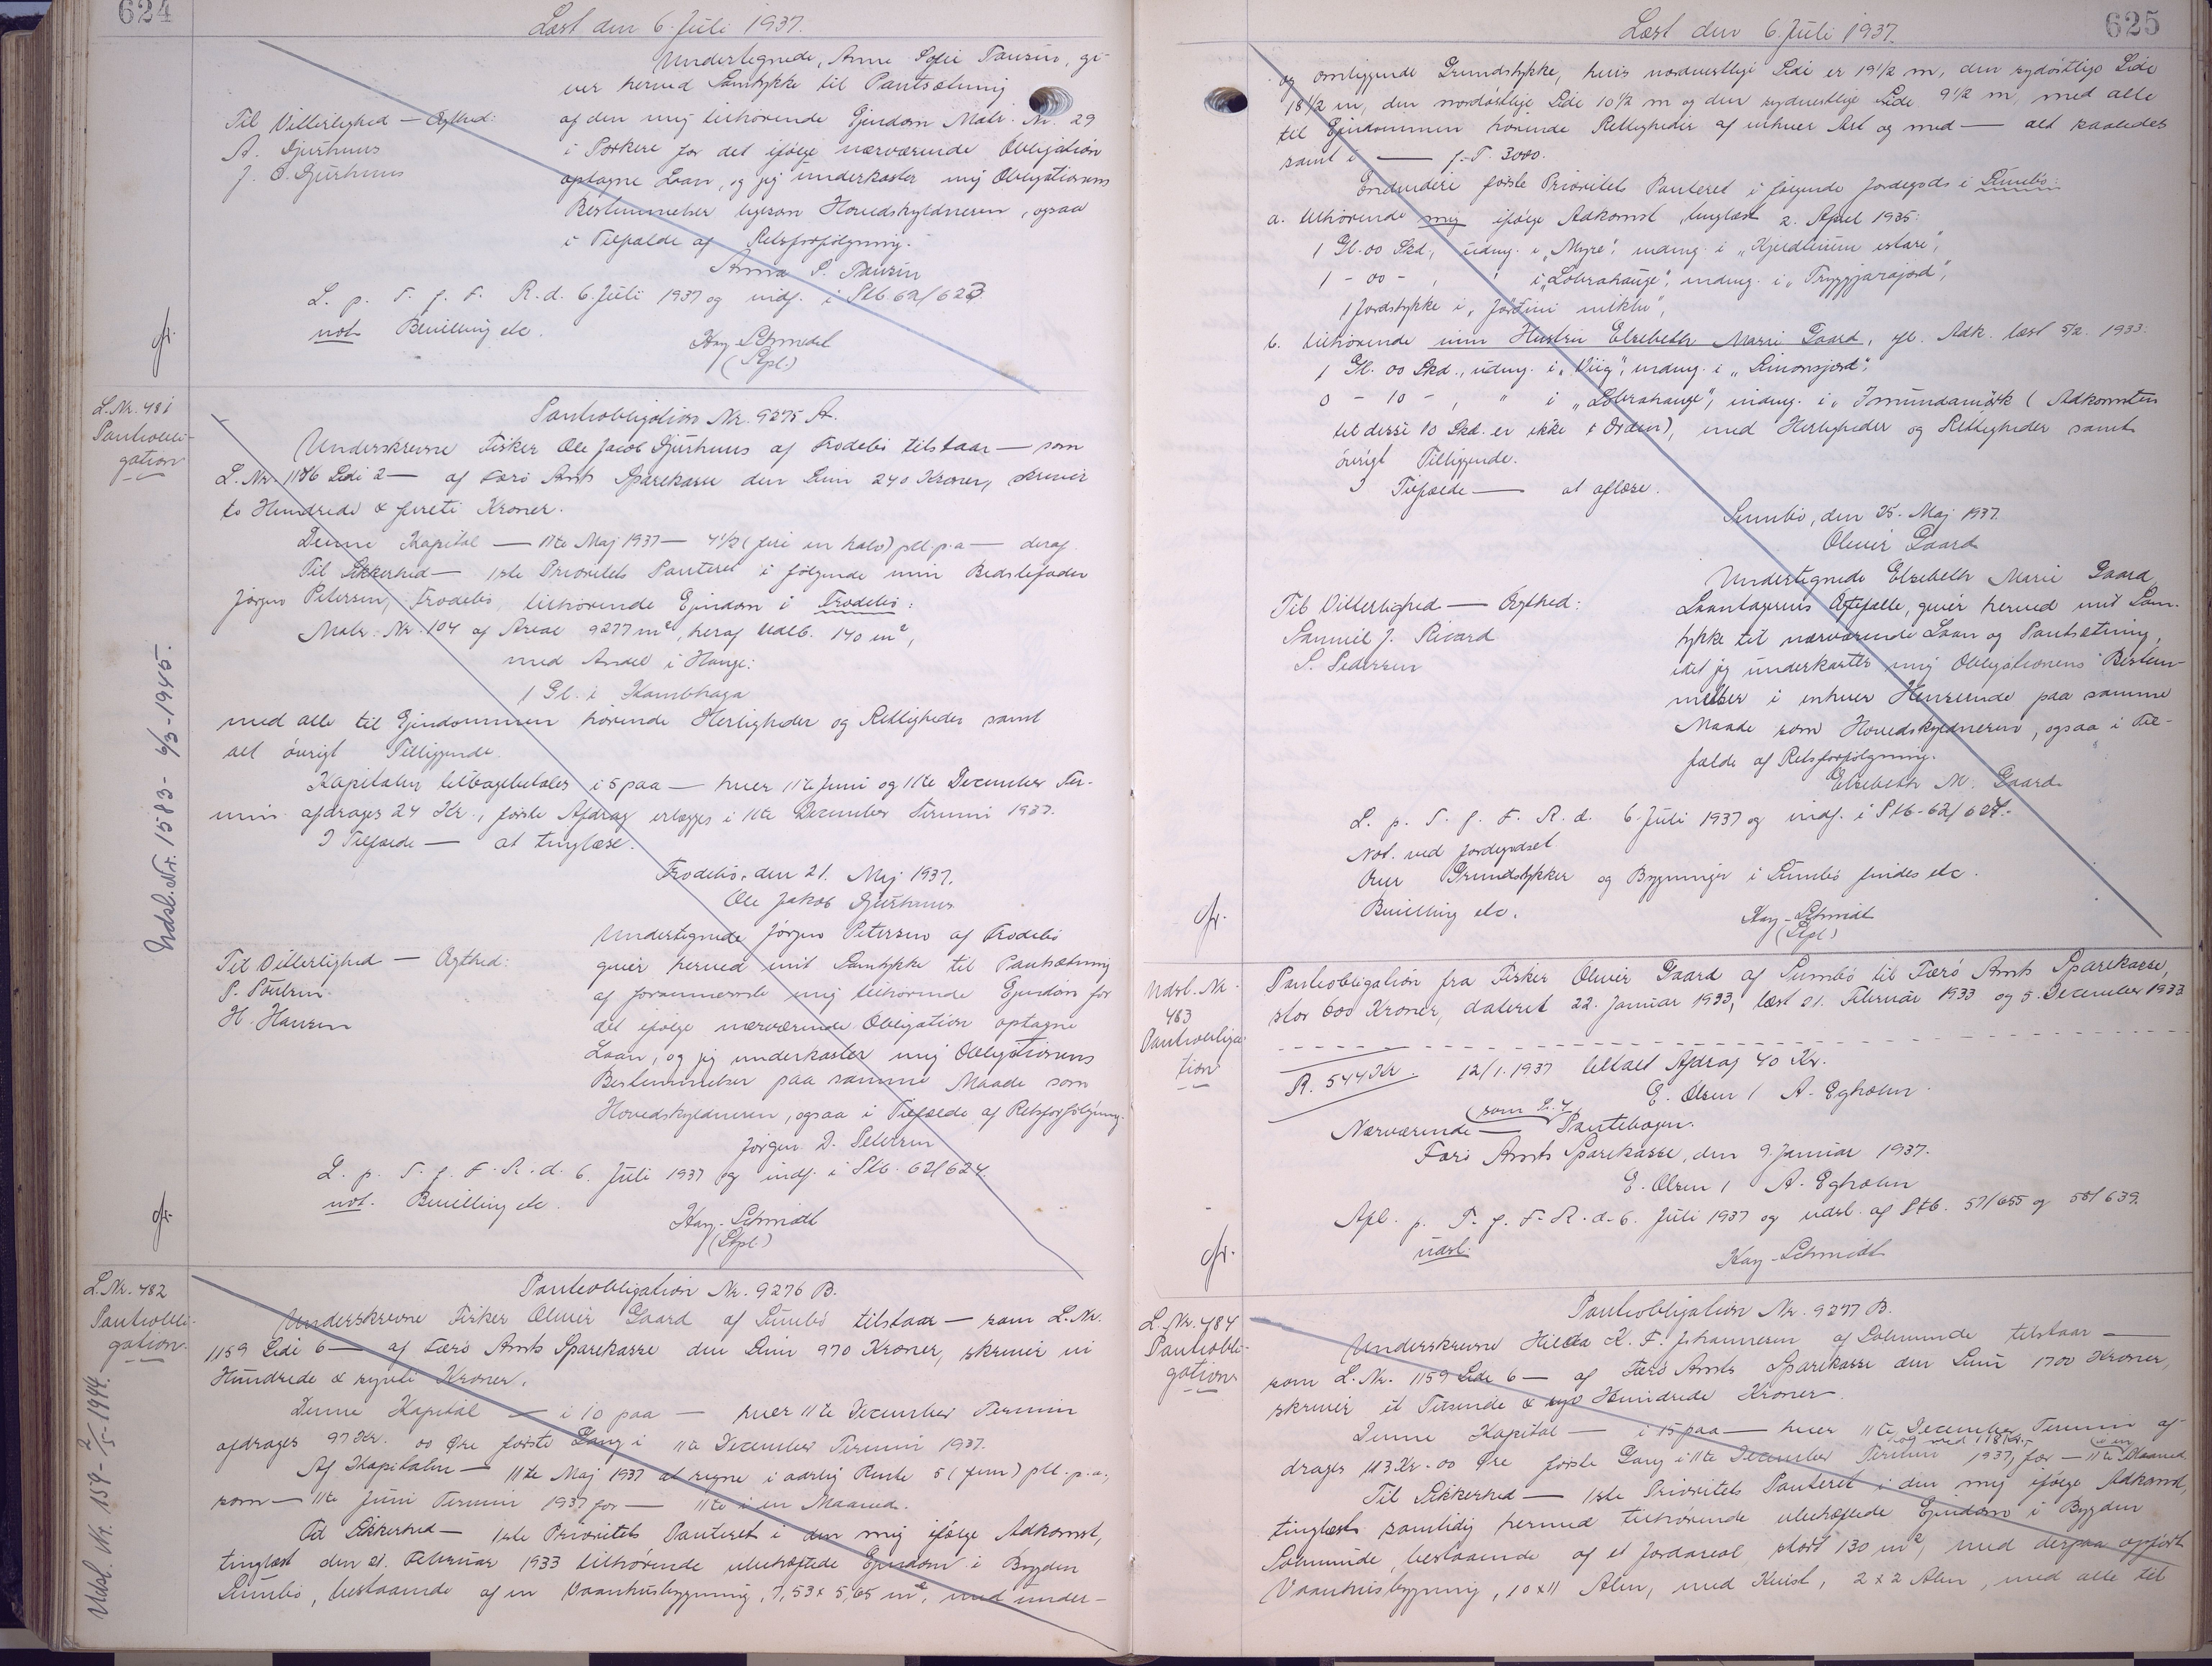 624
Læst den 6. Juli 1937.
Undertegnede, Anne Sofie Hansen, gi-
ver herved Samtykke til Pantsætning
Til Vitterlighed — Ægthed:
A. Djurhuus
J. E. Djurhuus
af den mig tilhørende Ejendom Matr. Nr. 29
i Porkere for det ifølge nærværende Obligation
optagne Laan, og jeg underkaster mig Obligationens
Bestemmelser ligesom Hovedskyldneren, ogsaa
i Tilfælde af Retsforfølgning.
L. p. T. f. F. R. d. 6. Juli 1937 og indf. i Ptb 62/623
not. Bevilling etc.
Kay-Schmidt
(Stpl.)
L. Nr. 481
Pantobli-
gation
Pantobligation Nr. 9275 A.
Underskrevne Fisker Ole Jacob Djurhuus af Frodebø tilstaar — som
L. Nr. 1186 Side 2 — af Færø Amts Sparekasse den Sum 240 Kroner, skriver
to Hundrede & fireti Kroner.
Denne Kapital — 11te Maj 1937 — 4½ (fire en halv) pCt. p.a — deraf
Til Sikkerhed — 1ste Prioritets Panteret i følgende min Bedstefader
Jørgen Petersen, Frodebø, tilhørende Ejendom i Frodebø:
Matr. Nr. 104 af Areal 9277 m², heraf Udlb. 140 m²,
med Andel i Hauge:
1 Gl. i Kambhaga
med alle til Ejendommen hørende Herligheder og Rettigheder samt
alt øvrigt Tilliggende.
Kapitalen tilbagebetales i 5 paa — hver 11te Juni og 11te December Ter-
min afdrages 24 Kr., første Afdrag erlægges i 11te December Termin 1937.
I Tilfælde — at tinglæse.
Frodebø, den 21. Maj 1937.
Ole Jakob Djurhuus
Undertegnede Jørgen Petersen af Frodebø
Til Vitterlighed — Ægthed:
P. Poulsen
H. Hansen
giver herved mit Samtykke til Pantsætning
af forannævnte mig tilhørende Ejendom for
det ifølge nærværende Obligation optagne
Laan, og jeg underkaster mig Obligationens
Bestemmelser paa samme Maade som
Hovedskyldneren, ogsaa i Tilfælde af Retsforfølgning.
Jørgen D. Petersen
L. p. T. f. F. R. d. 6. Juli 1937 og indf. i Ptb. 62/624.
not. Bevilling etc.
Kay-Schmidt
(Stpl.)
Udsl. Nr. 1583 - 6/3-1945.
L. Nr. 482
Pantobli-
gation.
Pantobligation Nr. 9276 B.
Underskrevne Fisker Oliver Gaard af Sumbø tilstaar — som L. Nr.
1159 Side 6 — af Færø Amts Sparekasse den Sum 970 Kroner, skriver ni
Hundrede & syvti Kroner.
Denne Kapital — i 10 paa — hver 11te December Termin
afdrages 97 Kr. 00 Øre første Gang i 11te December Termin 1937.
Af Kapitalen — 11te Maj 1937 at regne i aarlig Rente 5 (fem) pCt. p.a.,
som — 11te Juni Termin 1937 for — 11te i en Maaned.
Til Sikkerhed — 1ste Prioritets Panteret i den mig ifølge Adkomst,
tinglæst den 21. Februar 1933 tilhørende ubehæftede Ejendom i Bygden
Sumbø, bestaaende af en Vaanhusbygning, 7,53 x 5,65 m², med under-
Udsl. Nr. 159 - 2/5-1944.
625
Læst den 6. Juli 1937.
og omliggende Grundstykke, hvis nordvestlige Side er 19½ m, den sydøstlige Side
18½ m, den nordøstlige Side 10½ m og den sydvestlige Side 9½ m, med alle
til Ejendommen hørende Rettigheder af enhver Art og med — alt saaledes
samt i — f. T. 3000.
Endvidere første Prioritets Panteret i følgende Jordegods i Sumbø:
a. tilhørende mig ifølge Adkomst tinglæst 2. April 1935:
1 Gl. 00 Skd., udmg. i „Myre", indmg. i
1 - 00 - , " i „Lobrahauge", indmg. i „Tryggjarajord",
1 Jordstykke i
b. tilhørende min Hustru Elsebeth Marie Gaard, ifl. Adk. læst 5/2. 1933:
1 Gl. 00 Skd., udmg. i „Viig", indmg. i „Simonsjord",
0 - 10 - , " i „Lobrahauge", indmg. i „Ismundamørk (Adkomsten
til disse 10 Skd. er ikke i Orden), med Herligheder og Rettigheder samt
øvrigt Tilliggende.
I Tilfælde — at aflæse.
Sumbø, den 25. Maj 1937.
Oliver Gaard
Undertegnede Elsebeth Marie Gaard,
Til Vitterlighed — Ægthed:
P. Pedersen
Laantagerens Ægtefælle, giver herved mit Sam-
tykke til nærværende Laan og Pantsætning,
idet jeg underkaster mig Obligationens Bestem-
melser i enhver Henseende paa samme
Maade som Hovedskyldneren, ogsaa i Til-
fælde af Retsforfølgning.
Elsebeth M. Gaard
L. p. T. f. F. R. d. 6. Juli 1937 og indf. i Ptb. 62/624.
Not. ved Jordegodset
Over Grundstykker og Bygninger i Sumbø findes etc.
Bevilling etc.
Kay-Schmidt
(Stpl.)
Udsl. Nr.
483
Pantobliga-
tion
Pantobligation fra Fisker Oliver Gaard af Sumbø til Færø Amts Sparekasse,
stor 600 Kroner, dateret 22. Januar 1933, læst 21. Februar 1933 og 5. December 1933
R. 544 Kr. 12/1. 1937 betalt Afdrag 40 Kr.
E. Olsen / A. Egholm.
Nærværende — Pantebogen.
Færø Amts Sparekasse, den 9. Januar 1937.
E. Olsen / A. Egholm
Apl. p. T. f. F. R. d. 6. Juli 1937 og udsl. af Ptb. 57/655 og 58/639.
udsl.
Kay-Schmidt
L. Nr. 484
Pantobli-
gation
Pantobligation Nr. 9277 B.
Underskrevne Hilda K. F. Johannesen af Solmunde tilstaar —
som L. Nr. 1159 Side 6 — af Færø Amts Sparekasse den Sum 1700 Kroner,
skriver et Tusinde & syv Hundrede Kroner.
Denne Kapital — i 15 paa — hver 11te December Termin af-
drages 113 Kr. 00 Øre første Gang i 11te December Termin 1937, for — 11te i en Maaned
Til Sikkerhed — 1ste Prioritets Panteret i den mig ifølge Adkomst,
tinglæst samtidig hermed tilhørende ubehæftede Ejendom i Bygden
Solmunde, bestaaende af et Jordareal, stort 130 m², med derpaa opført
Vaanhusbygning, 10 x 11 Alen, med Kvist, 2 x 2 Alen, med alle til